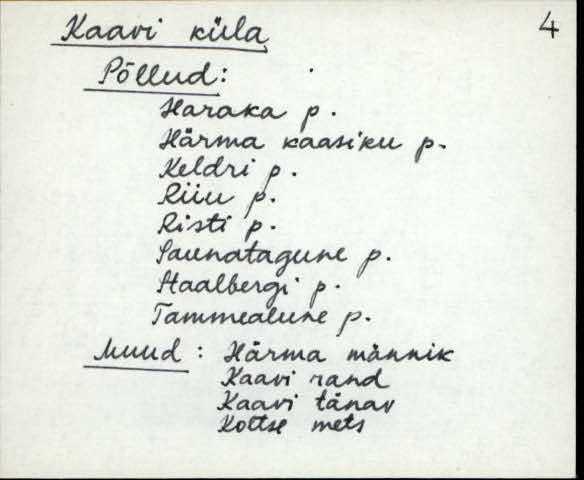 Kaavi küla 4
Põllud:
Haraka p.
Härma kaasiku p.
Keldri p.
Riiu p.
Risti p.
Saunatagune p.
Staalbergi p.
Tammealune p.
Muud: Härma männik
Kaavi rand
Kaavi tänav
Kottse mets